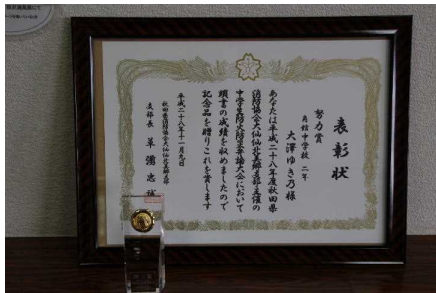 表彰状
努力賞
角館中学校 二年
大澤ゆき乃様
あなたは平成二十八年度秋田県
消防協会大仙仙北美郷支部主催の
中学生防火防災弁論大会において
頭書の成績を収めましたので
記念品を贈りこれを賞します
平成二十八年十一月九日
秋田県消防協会大仙仙北美郷支部
支部長 草彅忠誠